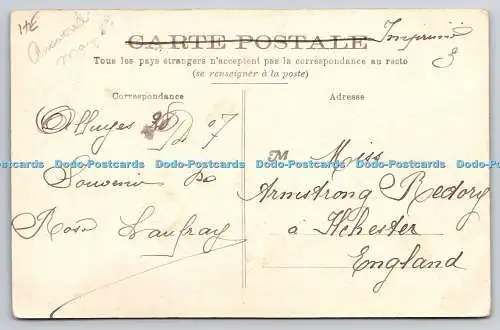 HE
Answered
May
CARTE POSTALE
Imprimé
3
Tous les pays étrangers n'acceptent pas la correspondance au recto
(se renseigner à la poste)
Correspondance
Alluyes 07
Souvenir de
Rosa Laufray
Adresse
M Miss
Armstrong Rectory
à Ilchester
England
Dodo-Postcards Dodo-Postcards Dodo-Postcards Dodo-Postcards Dodo-Postcards Dodo-Postcards